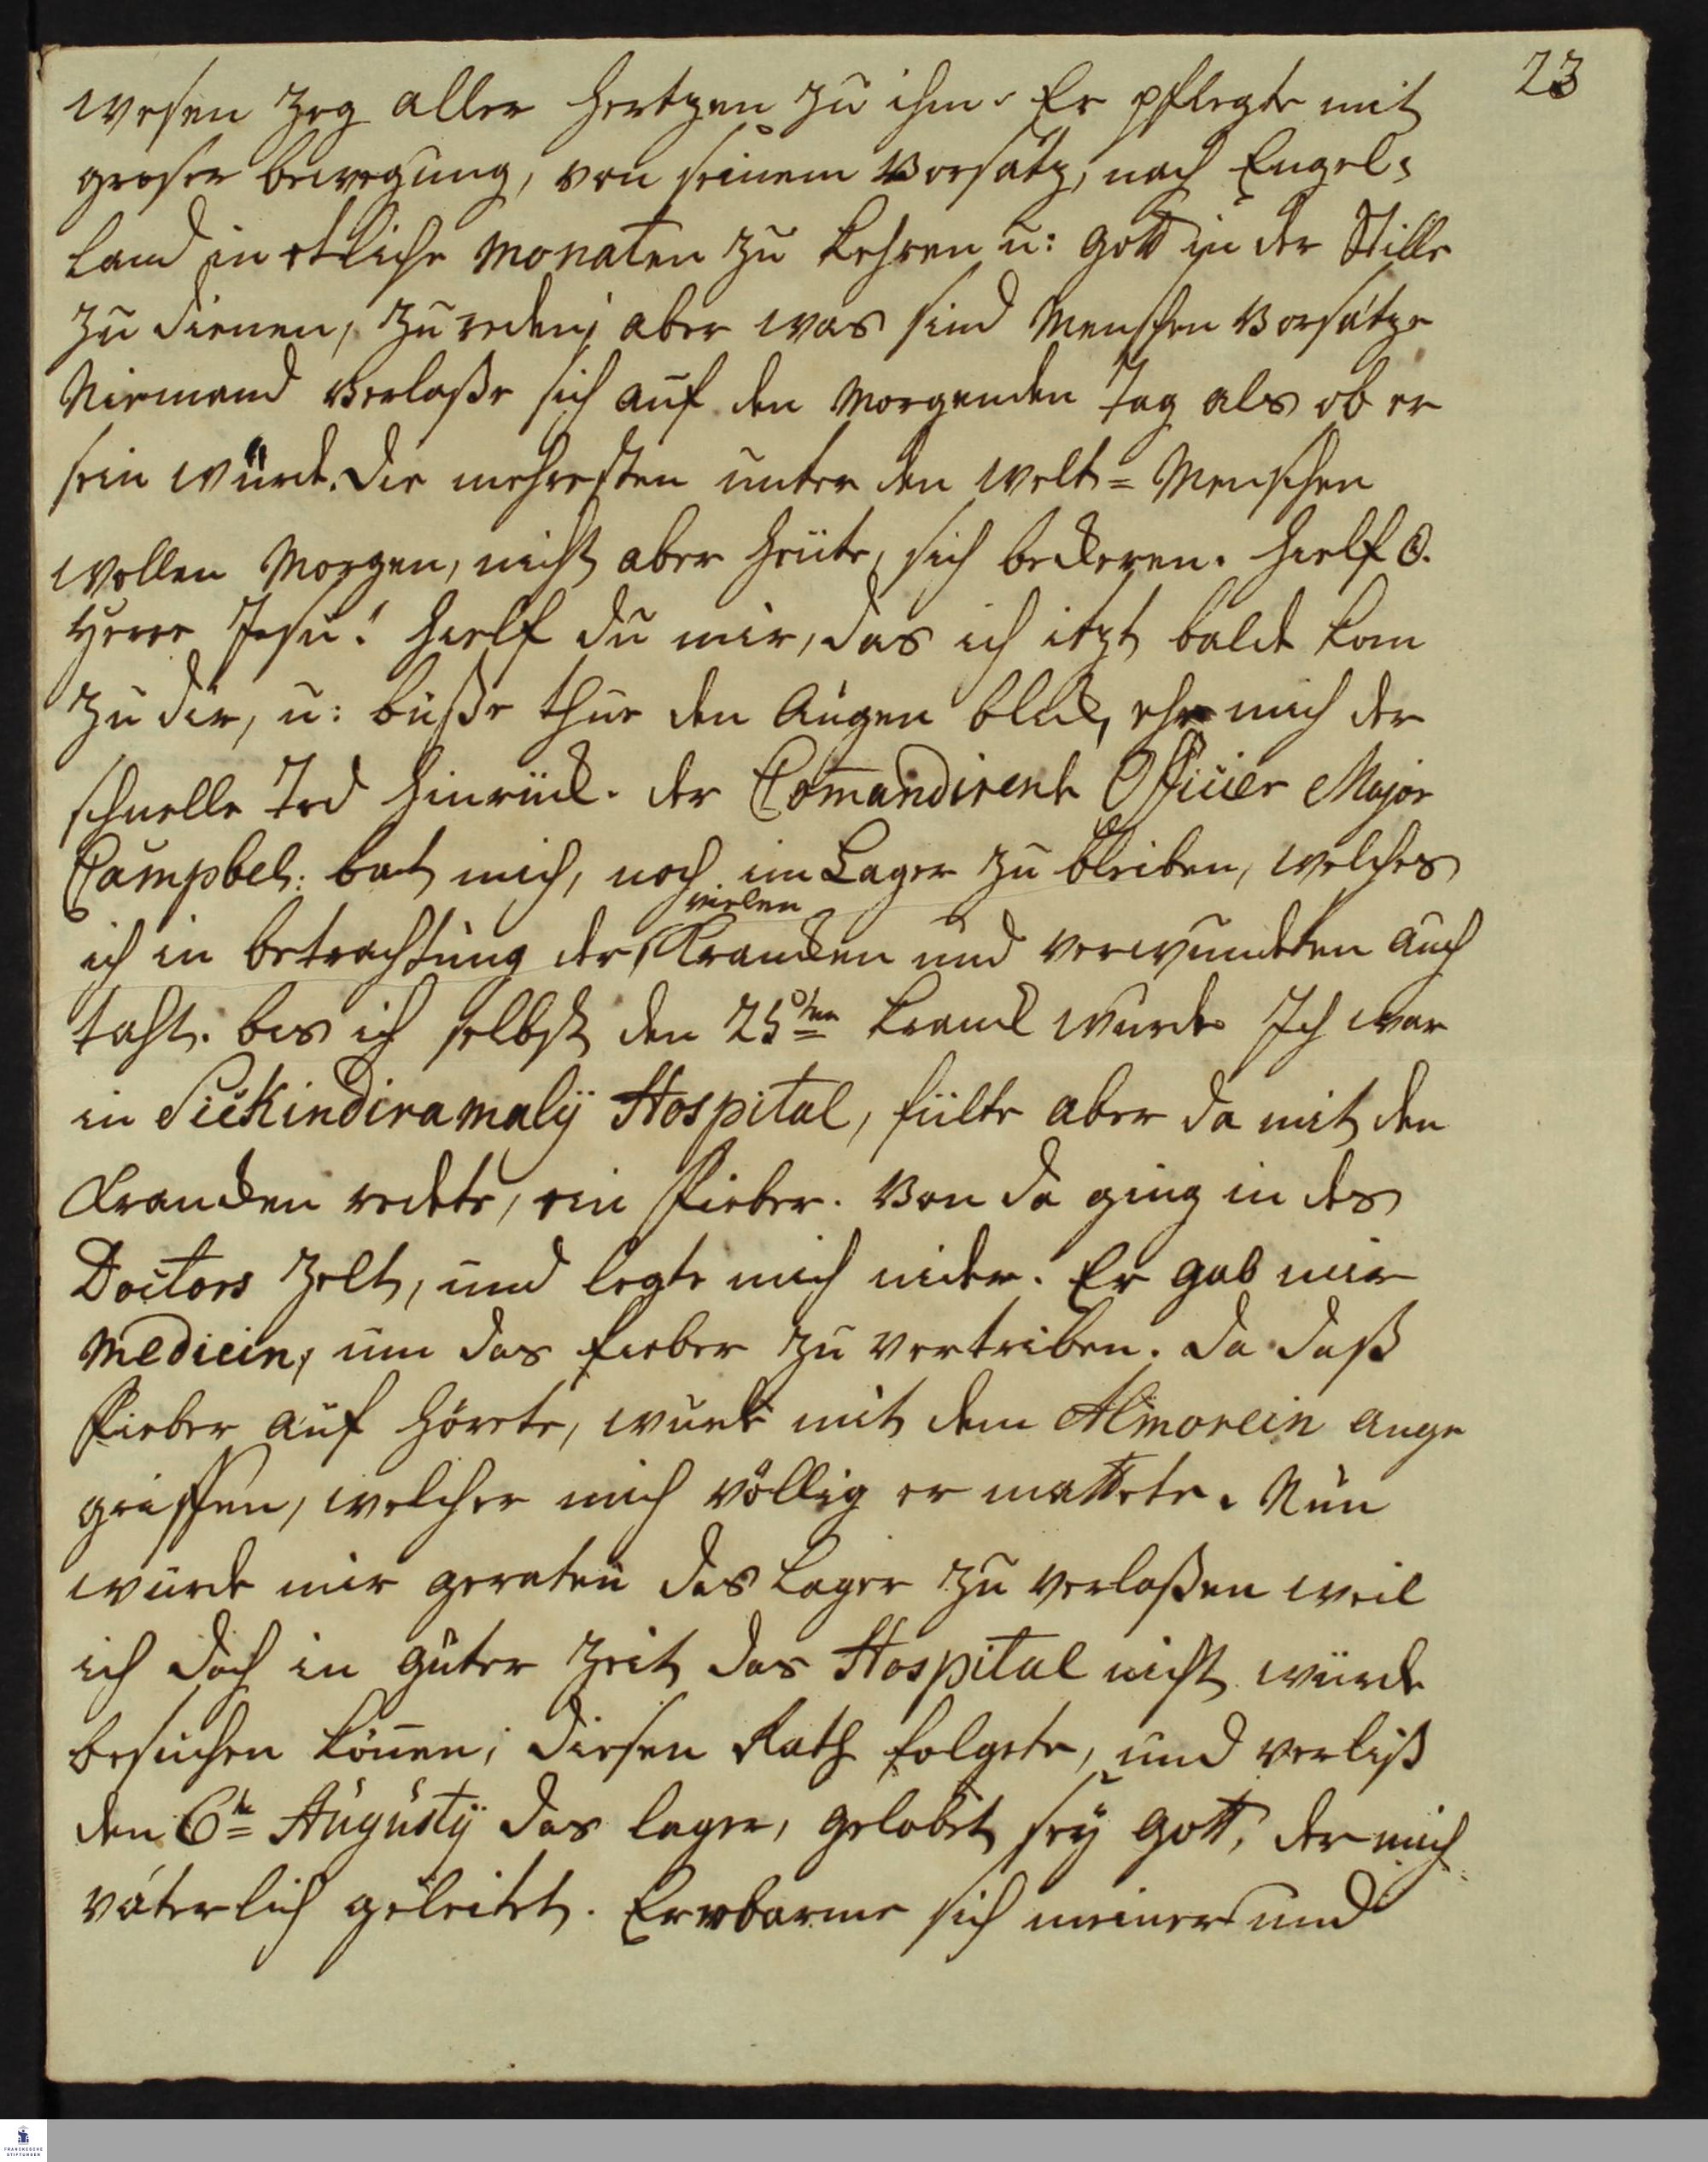 23
wesen zog aller Hertzen zu ihm. Er pflegte mit
groser bewegung, von seinem Vorsatz, nach Engel=
land in etliche Monaten zu kehren u: Gott in der Stille
zu dienen, zu reden, aber was sind Menschen Vorsätze
Niemand verlaße sich auf den Morgenden Tag als ob er
sein würde. Die mehresten unter den Welt=Menschen
wollen Morgen, nicht aber heüte, sich bekeren. Hielf O.
Herre Jesu! Hielf du mir, das ich itzt balde kom
zu dir, u: buße thue den Augen blick, ehe mich der
schnelle Tod hinrück. Der Com̄andirende Officier Major
Campbel: bat mich, noch im Lager zu bleiben, welches
ich in betrachtung der vielen Krancken und verwundeten auch
taht. bis ich selbst den 25sten kranck wurde Ich war
in Sickindiramalÿ Hospital, fülte aber da mit den
Krancken redete, ein Fieber. Von da ging in des
Doctors Zelt, und legte mich nider. Er gab mir
Medicin, um das fieber zu vertriben. Da daß
Fieber auf hörete, wurde mit dem Almorein ange
griffen, welcher mich völlig er mattete. Nun
wurde mir geraten das Lager zu verlaßen weil
ich doch in guter Zeit das Hospital nicht würde
besuchen kön̄en; diesen Rath folgete, und verliß
den 6te Augustÿ das lager, gelobet seÿ Gott, der mich
väterlich geleitet. Er erbarme sich meiner und
FRANCKESCHE
STIFTUNGEN